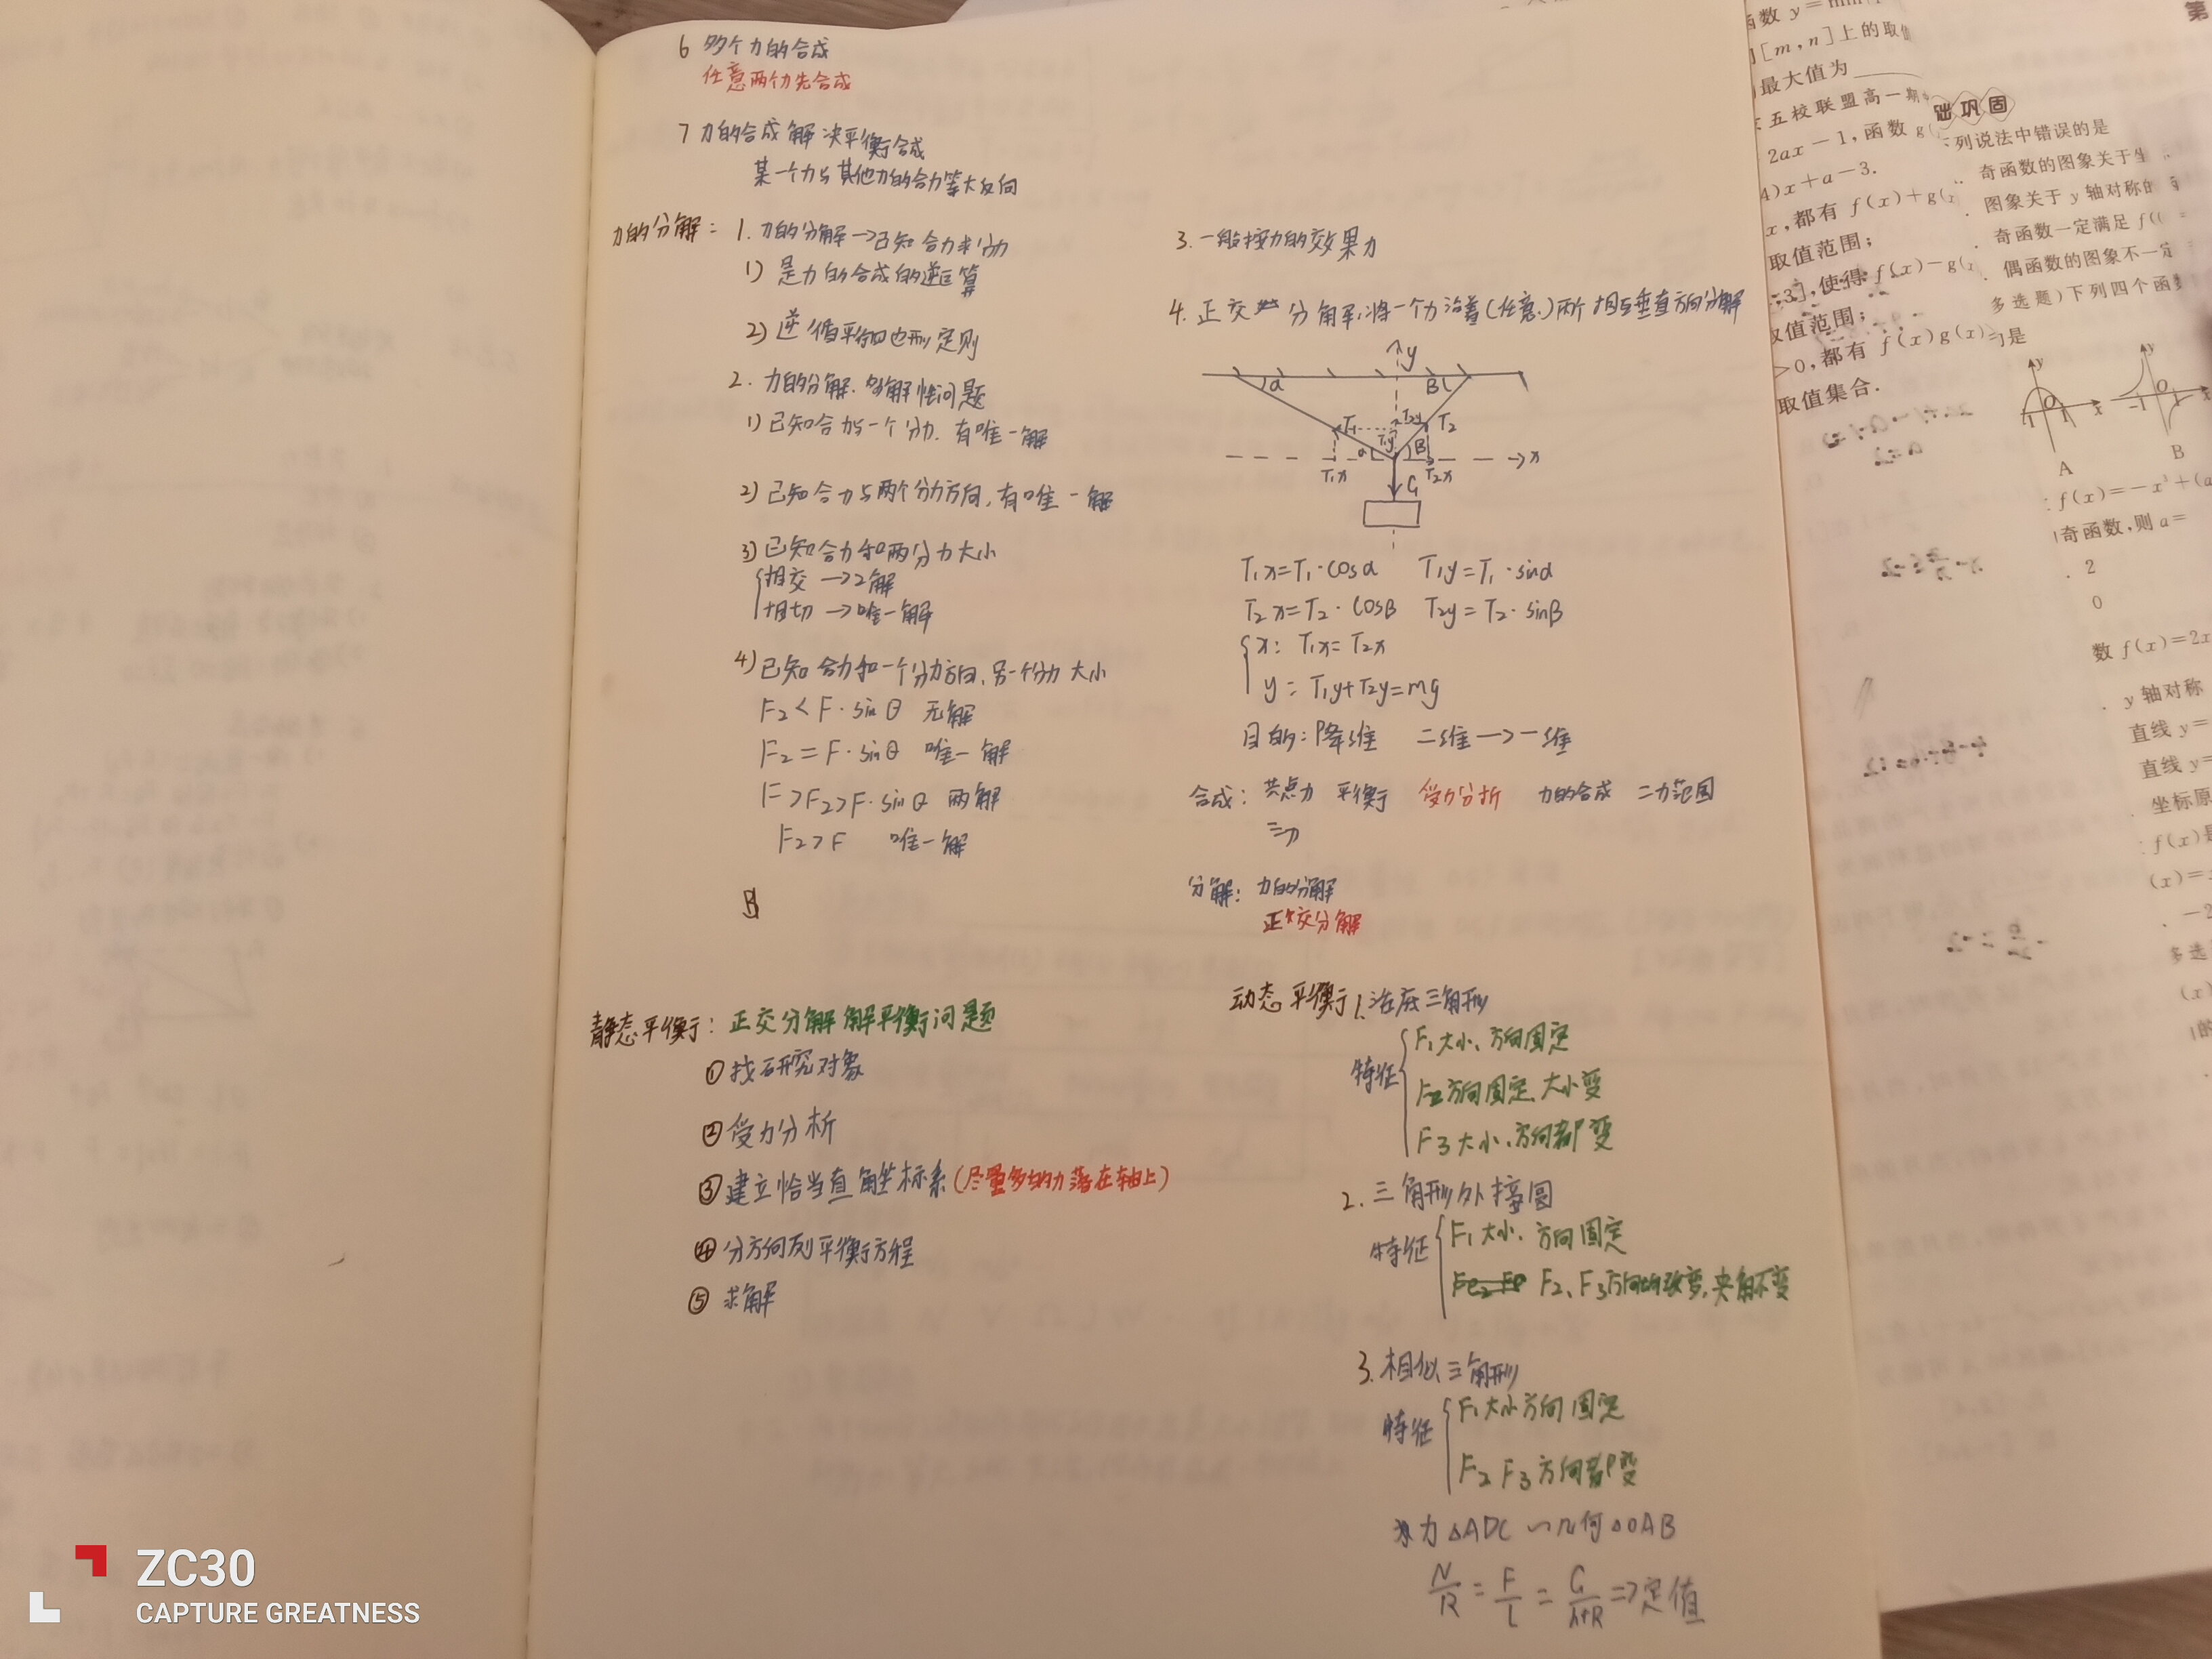 6 多个力的合成
任意两个力先合成
7 力的合成解决平衡合成
某一个力与其他力的合力等大反向
力的分解:
1. 力的分解→已知合力求分力
1) 是力的合成的逆运算
2) 遵循平行四边形定则
2. 力的分解.多解性问题
1) 已知合力与一个分力.有唯一解
2) 已知合力与两个分力方向,有唯一解
3) 已知合力和两分力大小
相交 →2解
相切 →唯一解
4) 已知合力和一个分力方向、另一个分力大小
F₂<F·sinθ 无解
F₂=F·sinθ 唯一解
F>F₂>F·sinθ 两解
F₂>F 唯一解
静态平衡: 正交分解解平衡问题
① 找研究对象
② 受力分析
③ 建立恰当直角坐标系(尽量多的力落在轴上)
④ 分方向列平衡方程
⑤ 求解
3. 一般按力的效果力
4. 正交 分解:将一个力沿着(任意)两个相互垂直方向分解
y
α β
T₁ T₂y T₂
T₁y
α β
x
T₁x T₂x
G
T₁x=T₁·cosα T₁y=T₁·sinα
T₂x=T₂·cosβ T₂y=T₂·sinβ
x: T₁x=T₂x
y: T₁y+T₂y=mg
目的:降维 二维→一维
合成: 共点力 平衡 受力分析 力的合成 二力范围
三力
分解: 力的分解
正交分解
动态平衡 1. 活底三角形
特征
F₁大小、方向固定
F₂方向固定、大小变
F3大小、方向都变
2. 三角形外接圆
特征
F₁大小、方向固定
F₂、F₃方向均改变,夹角不变
3. 相似三角形
特征
F₁大小方向固定
F₂ F₃方向都变
力△ADC∽几何△OAB
N/R = F/L = G/h+R ⇒定值
函数 y=min{
[m,n]上的取值
最大值为
五校联盟高一期
2ax-1,函数 g(
4)x+a-3.
x,都有 f(x)+g(x
取值范围;
,3],使得 f(x)-g(x
取值范围;
>0,都有 f(x)g(x)
取值集合.
第
础巩固
列说法中错误的是
奇函数的图象关于坐
图象关于 y 轴对称的
奇函数一定满足 f(
偶函数的图象不一定
多选题)下列四个函数
是
y
O
1
x
A
y
O
-1 1
x
B
f(x)=-x³+(a
奇函数,则 a=
2
0
数 f(x)=2x
y 轴对称
直线 y=
直线 y=
坐标原
f(x)是
(x)=
-2
多选
(x)
的
ZC30
CAPTURE GREATNESS